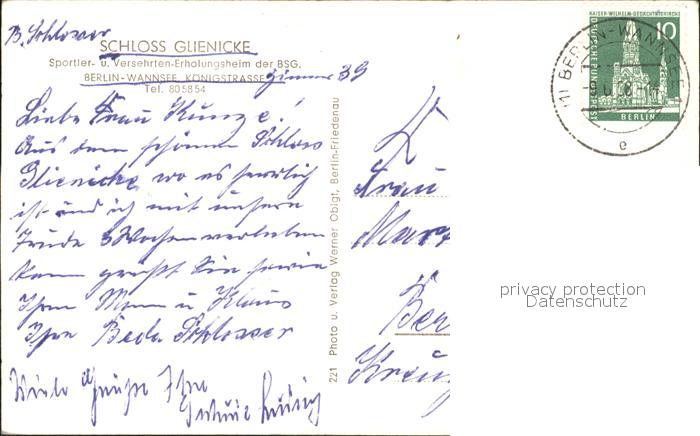 B. Schlosser
SCHLOSS GLIENICKE
Sportler- u. Versehrten-Erholungsheim der BSG.
BERLIN-WANNSEE, KÖNIGSTRASSE
Zimmer 39
Tel. 805854
Liebe Frau Kunze!
Aus dem schönen Schloss
Glienicke, wo es herrlich
ist und ich mit unsere
Trude 3 Wochen verleben
kann grüßt Sie sowie
Ihren Mann u Klaus
Ihre Beda Schlosser
Viele Grüße Ihre
221 Photo u. Verlag Werner Obigt, Berlin-Friedenau
Frau
Mar
Ber
Kreuz
KAISER-WILHELM-GEDÄCHTNISKIRCHE
10
DEUTSCHE BUNDESPOST
BERLIN
(1) BERLIN-WANNSEE
e
privacy protection
Datenschutz